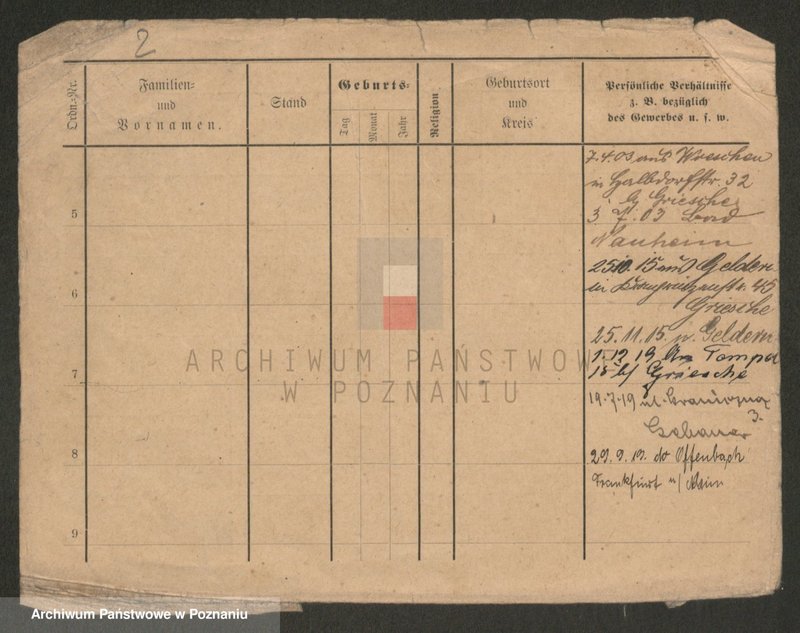 2
Ordn.-Nr.
Familien-
und
Vornamen.
Stand
Geburts-
Tag
Monat
Jahr
Religion
Geburtsort
und
Kreis
Persönliche Verhältnisse
z. B. bezüglich
des Gewerbes u. s. w.
7.4.03 aus Wreschen
in Halbdorfstr. 32
b/ Griesche
3 7. 03 Bad
Nauheim
5
25.10.15 aus Geldern
in 45
Griesche
6
25.11.15 n. Geldern
1.12.19 Am Tempel
18 b/ Griesche
7
19.7.19 ul. Graniczna
3.
Gebauer
29.9.19. do Offenbach
Frankfurt a/ Main
8
9
ARCHIWUM PAŃSTWOWE
W POZNANIU
Archiwum Państwowe w Poznaniu